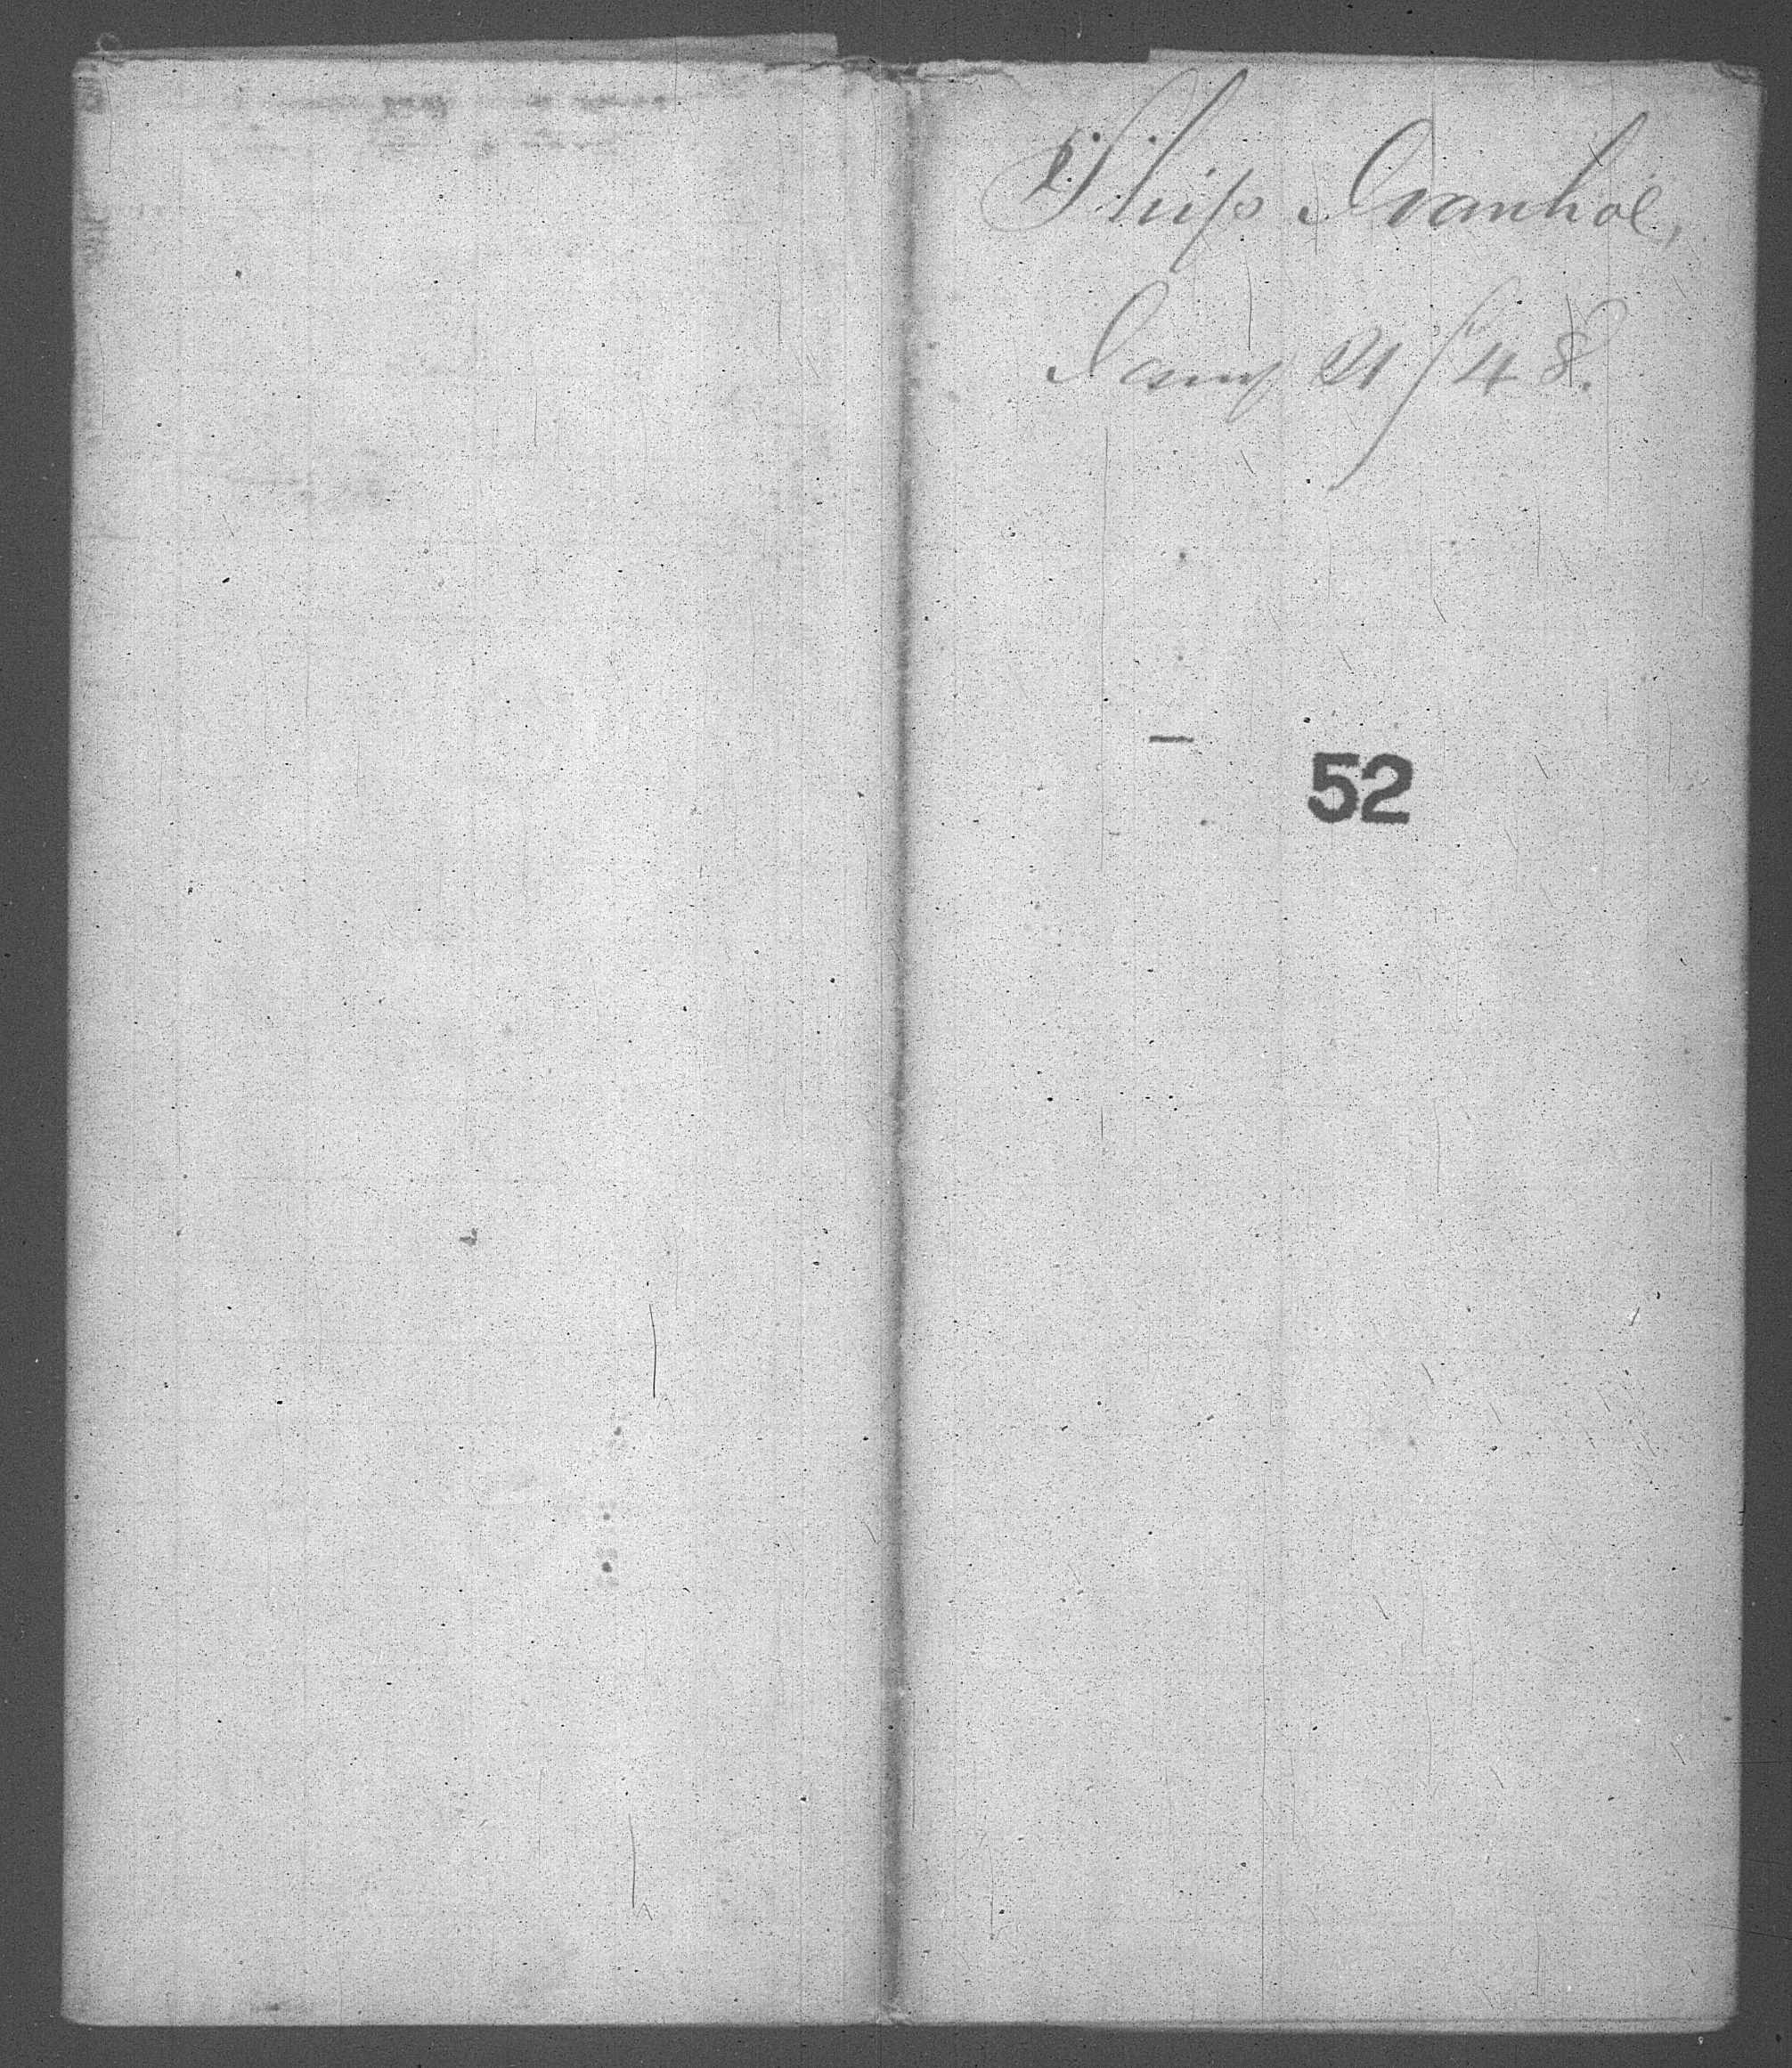 Ship Ivanhoe,
Jany 21/48.
52